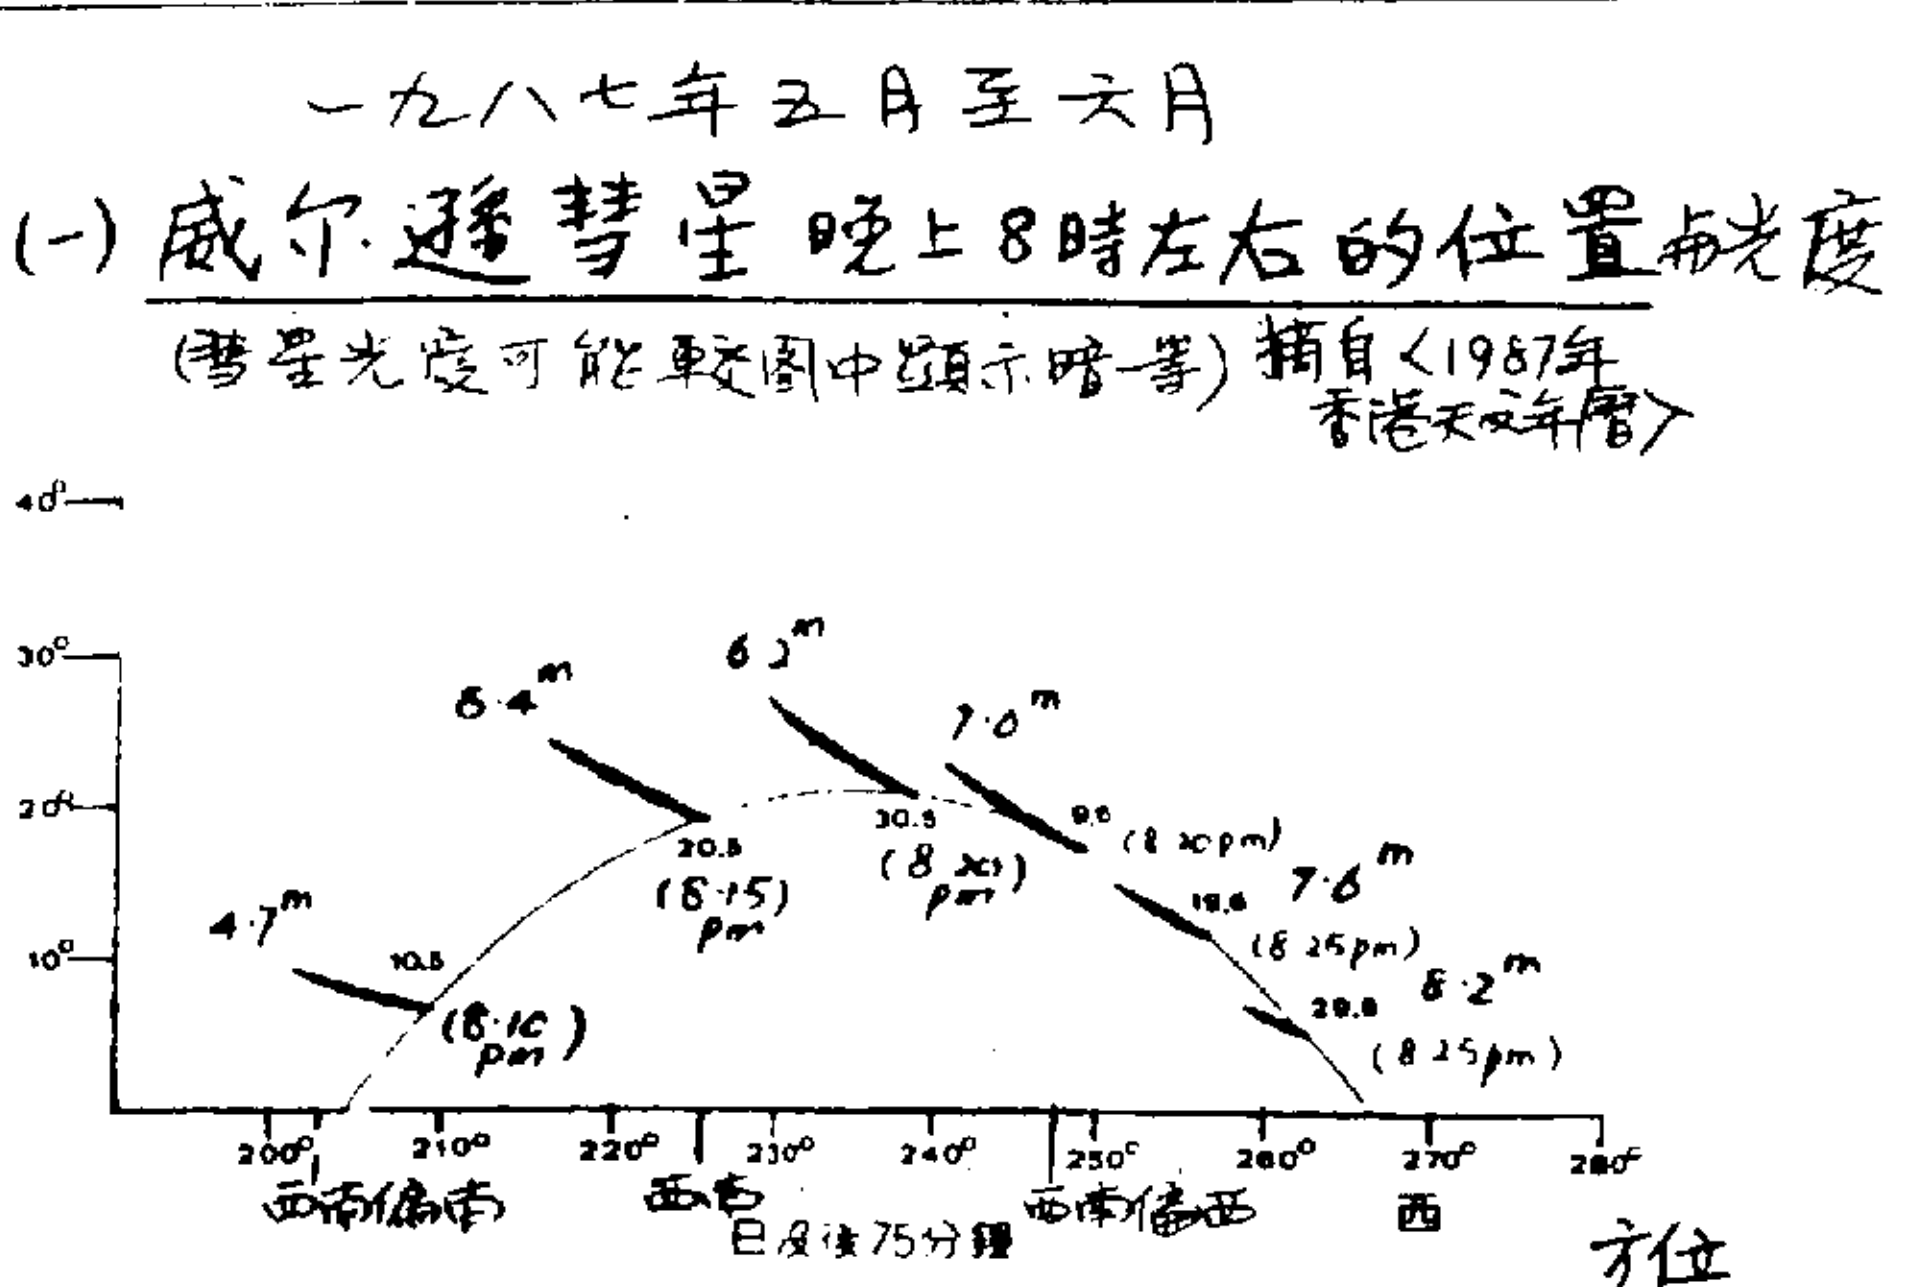 一九八七年五月至六月
(一) 威尔遜彗星晚上8時左右的位置與光度
(彗星光度可能較图中顯示暗一等) 摘自<1987年
香港天文年曆>
40°
30°
20°
10°
4.7m
10.5
(8.10
pm)
5.4m
20.5
(8.15)
pm
6.2m
30.5
(8 20)
pm
7.0m
9.6
(8 20pm)
7.6m
19.6
(8 25pm)
8.2m
29.6
(8 25pm)
200° 210° 220° 230° 240° 250° 260° 270° 280°
西南偏南 西南 西南偏西 西
日沒後75分鐘
方位